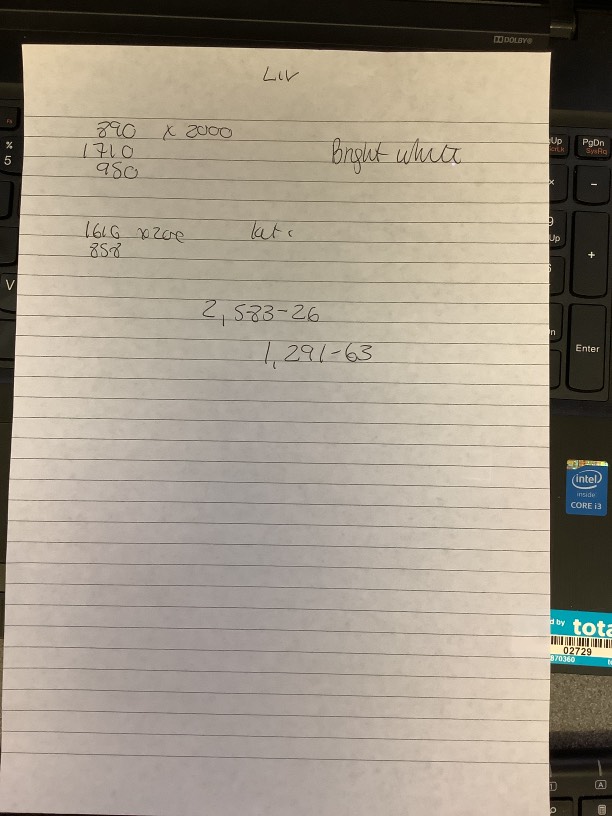 DOLBY
Liv
890 x 2000
1710
950
Bright white
1616 x 200
858
kit
2,583-26
1,291-63
%
5
V
PgUp
PgDn
SysRq
+
Enter
intel
inside
CORE i3
d by tota
02729
870360
A